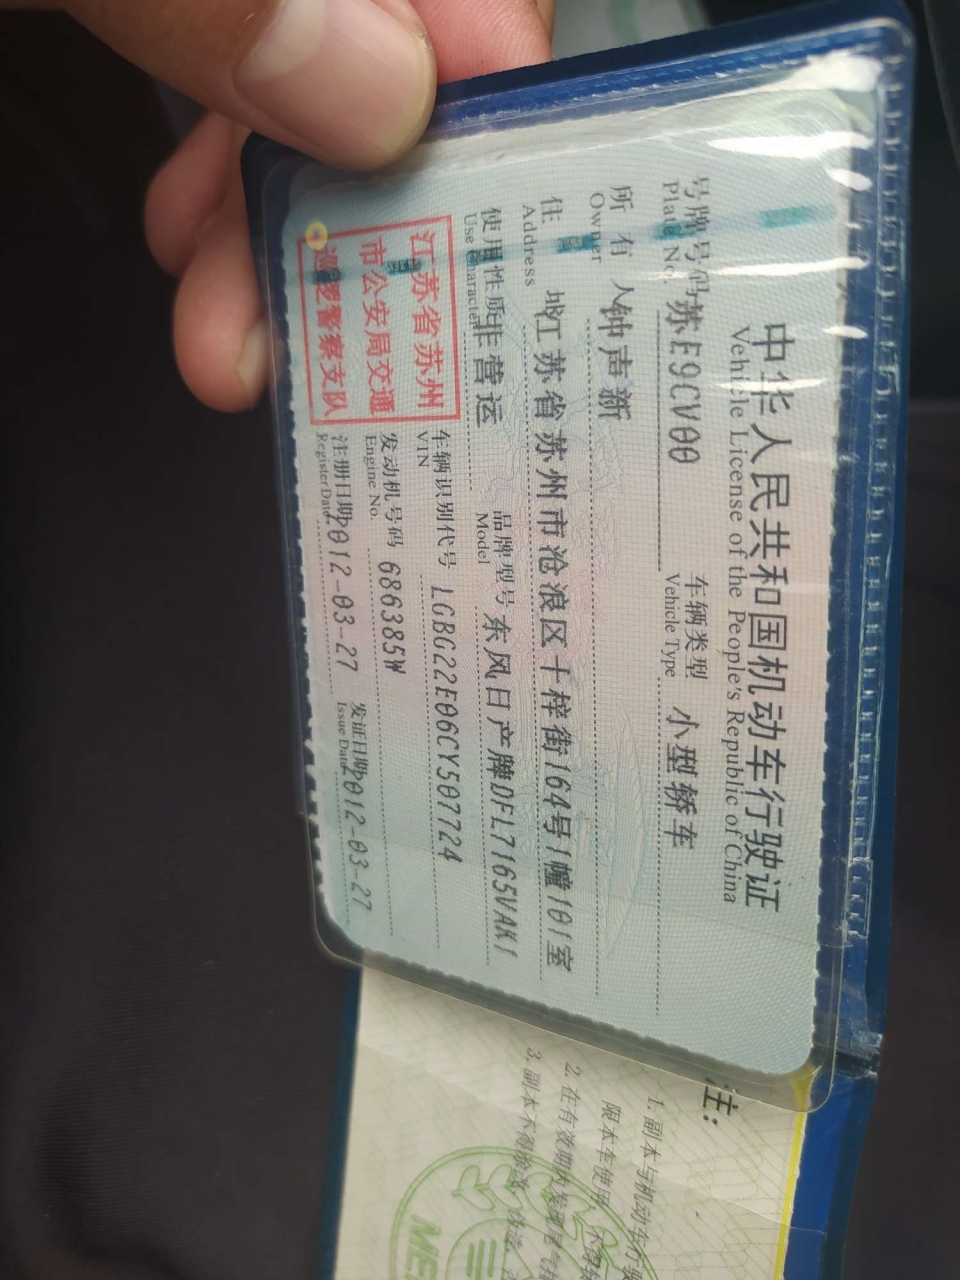 中华人民共和国机动车行驶证
Vehicle License of the People's Republic of China
号牌号码 苏E9CV00 车辆类型 小型轿车
Plate No. Vehicle Type
所有人 钟声新
Owner
住址 江苏省苏州市沧浪区十梓街164号1幢101室
Address
使用性质 非营运 品牌型号 东风日产牌DFL7165VAK1
Use Character Model
江苏省苏州
市公安局交通
巡逻警察支队
车辆识别代号 LGBG22E06CY507724
VIN
发动机号码 686385W
Engine No.
注册日期 2012-03-27 发证日期 2012-03-27
Register Date Issue Date
注:
1. 副本与机动车行驶
限本车使用,
2. 在有效期内发现尾气排
3. 副本不得涂改、伪造、